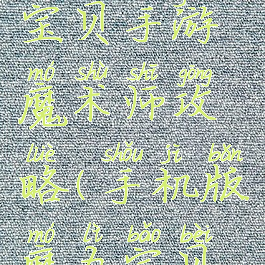 宝贝手游
mó shù shī gōng
魔术师攻
lüè shǒu jī bǎn
略(手机版
mó lì bǎo bèi
魔力宝贝